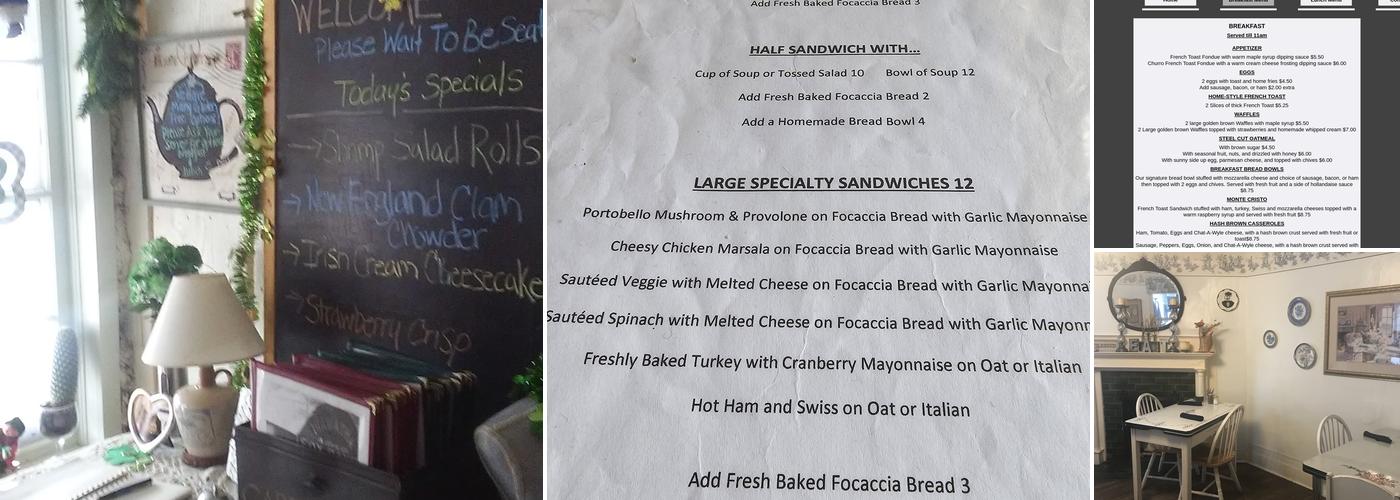 WELCOME
Please Wait To Be Seat
Today's Specials
→Shrimp Salad Rolls
→New England Clam
Chowder
→Irish Cream Cheesecake
→Strawberry Crisp
Please Ask
Add Fresh Baked Focaccia Bread 3
HALF SANDWICH WITH...
Cup of Soup or Tossed Salad 10 Bowl of Soup 12
Add Fresh Baked Focaccia Bread 2
Add a Homemade Bread Bowl 4
LARGE SPECIALTY SANDWICHES 12
Portobello Mushroom & Provolone on Focaccia Bread with Garlic Mayonnaise
Cheesy Chicken Marsala on Focaccia Bread with Garlic Mayonnaise
Sautéed Veggie with Melted Cheese on Focaccia Bread with Garlic Mayonna
Sautéed Spinach with Melted Cheese on Focaccia Bread with Garlic Mayonn
Freshly Baked Turkey with Cranberry Mayonnaise on Oat or Italian
Hot Ham and Swiss on Oat or Italian
Add Fresh Baked Focaccia Bread 3
Home Breakfast Menu Lunch Menu
BREAKFAST
Served till 11am
APPETIZER
French Toast Fondue with warm maple syrup dipping sauce $5.50
Churro French Toast Fondue with a warm cream cheese frosting dipping sauce $6.00
EGGS
2 eggs with toast and home fries $4.50
Add sausage, bacon, or ham $2.00 extra
HOME-STYLE FRENCH TOAST
2 Slices of thick French Toast $5.25
WAFFLES
2 large golden brown Waffles with maple syrup $5.50
2 Large golden brown Waffles topped with strawberries and homemade whipped cream $7.00
STEEL CUT OATMEAL
With brown sugar $4.50
With seasonal fruit, nuts, and drizzled with honey $6.00
With sunny side up egg, parmesan cheese, and topped with chives $6.00
BREAKFAST BREAD BOWLS
Our signature bread bowl stuffed with mozzarella cheese and choice of sausage, bacon, or ham
then topped with 2 eggs and chives. Served with fresh fruit and a side of hollandaise sauce
$8.75
MONTE CRISTO
French Toast Sandwich stuffed with ham, turkey, Swiss and mozzarella cheeses topped with a
warm raspberry syrup and served with fresh fruit $8.75
HASH BROWN CASSEROLES
Ham, Tomato, Eggs and Chat-A-Wyle cheese, with a hash brown crust served with fresh fruit or
toast$8.75
Sausage, Peppers, Eggs, Onion, and Chat-A-Wyle cheese, with a hash brown crust served with